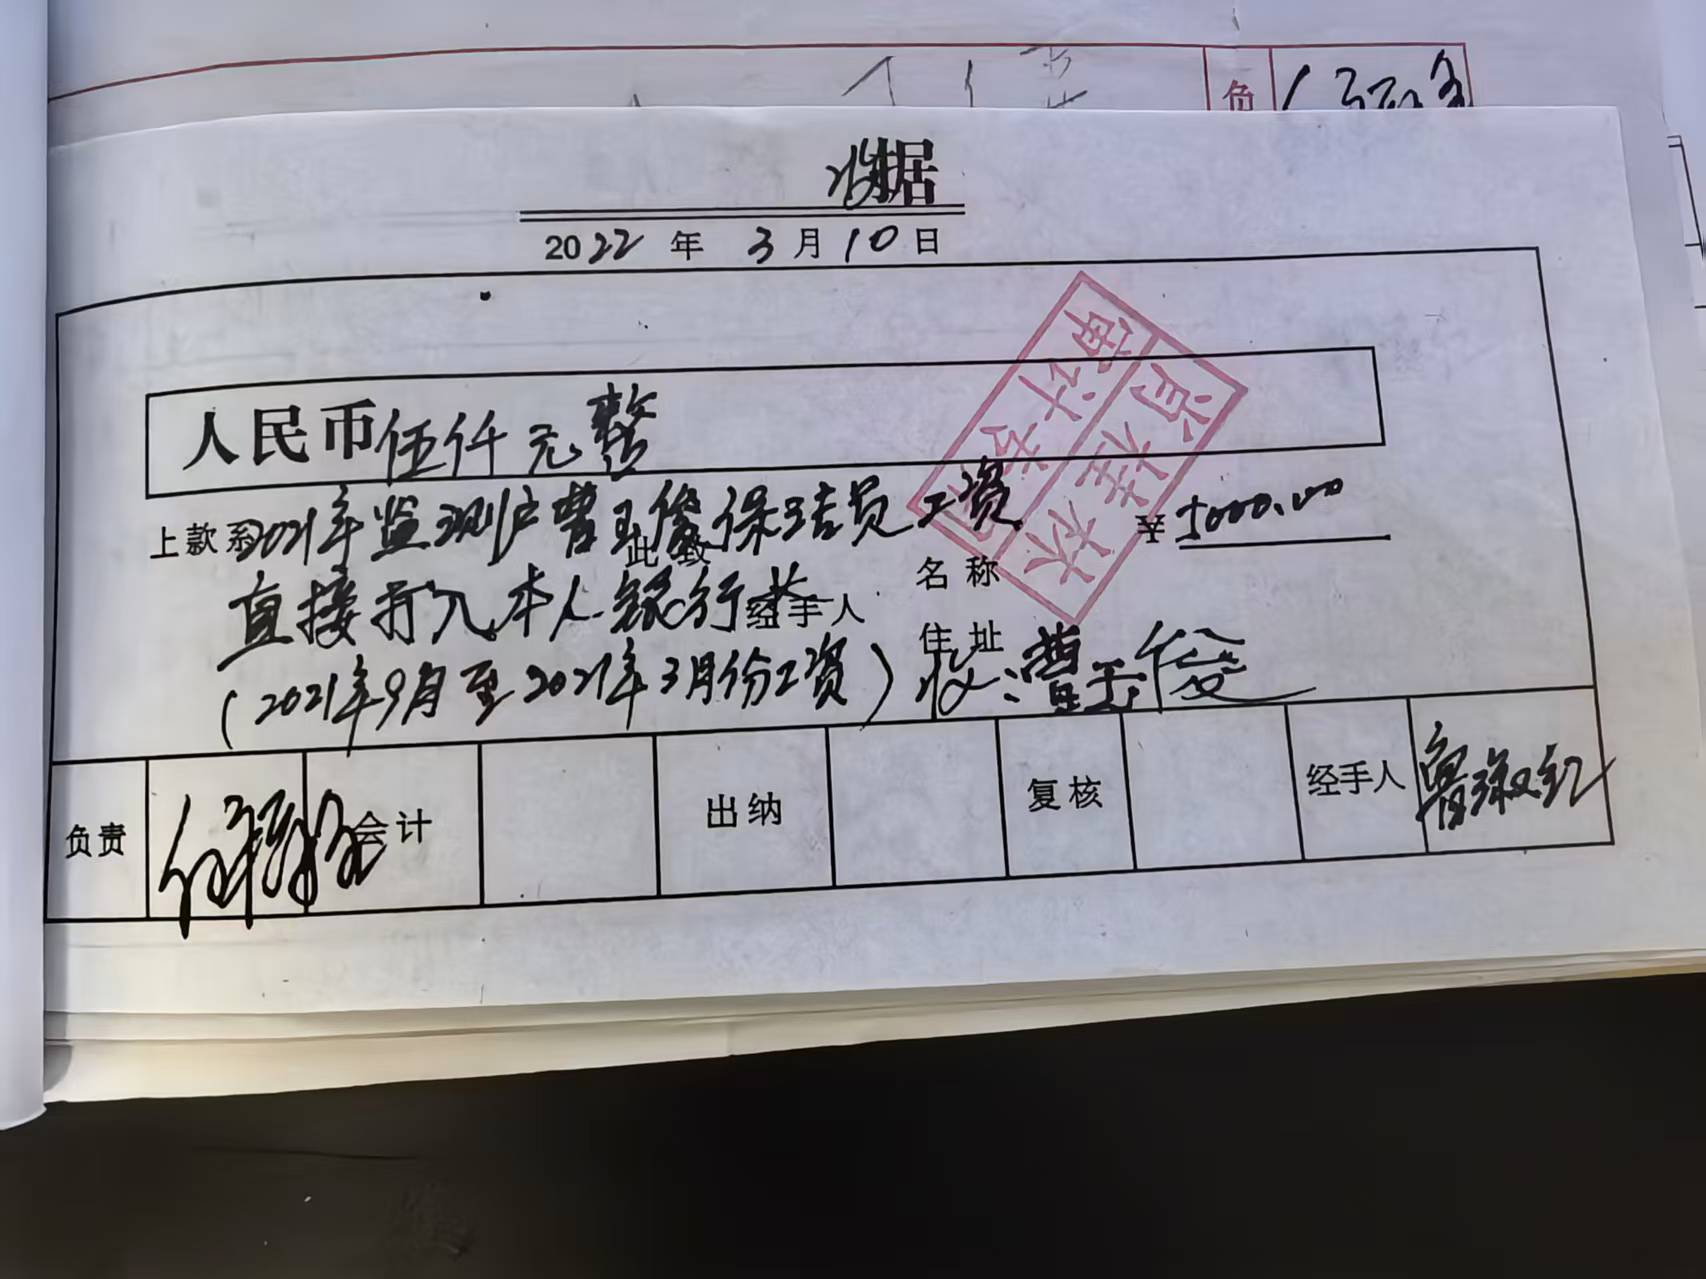 负
收据
2022 年 3 月 10 日
人民币伍仟元整
上款系2021年监测户曹玉俊保洁员工资 ¥ 5000.00
此致
名称
直接打入本人银行卡
经手人
住址
(2021年9月至2021年3月份工资) 收:曹玉俊
负责 会计 出纳 复核 经手人 鲁淑红
审计专用
肖桂林